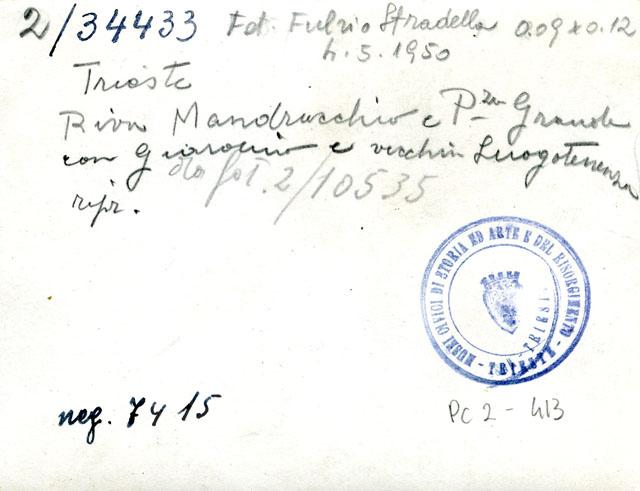 2/34433 Fot. Fulvio Stradella 0.09x0.12
4.5.1950
Trieste
Riva Mandracchio e P.za Grande
con Giardino e vecchia Luogotenenza
da fot. 2/10535
ripr.
MUSEI CIVICI DI STORIA ED ARTE E DEL RISORGIMENTO
- TRIESTE -
TRIESTE
neg. 7415
PC 2 - 413